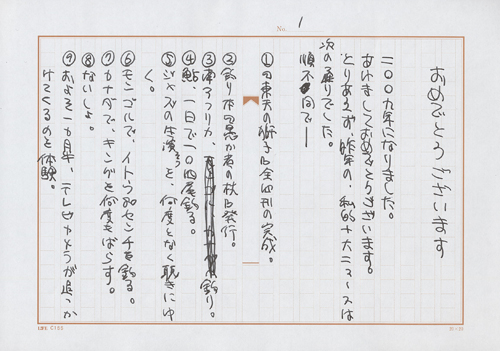 No. 1
おめでとうございます
二〇〇九年になりました。
あけましておめでとうございます。
とりあえず、昨年の、私的十大ニュースは
次の通りでした。
順不同で──
①四東天の獅子四全四刊の完成。
②釣り本の愚か者の杖四発行。
③南アフリカ、釣り。
④鮎、一日で一〇四尾釣る。
⑤ジャズの生演そうを、何度となく聴きにゆ
く。
⑥モンゴルで、イトウ90センチを釣る。
⑦カナダで、キングを何度もばらす。
⑧ないしょ。
⑨およそ一カ月半、テレビカメラが追っか
けてくるのを体験。
LIFE C155
20×20